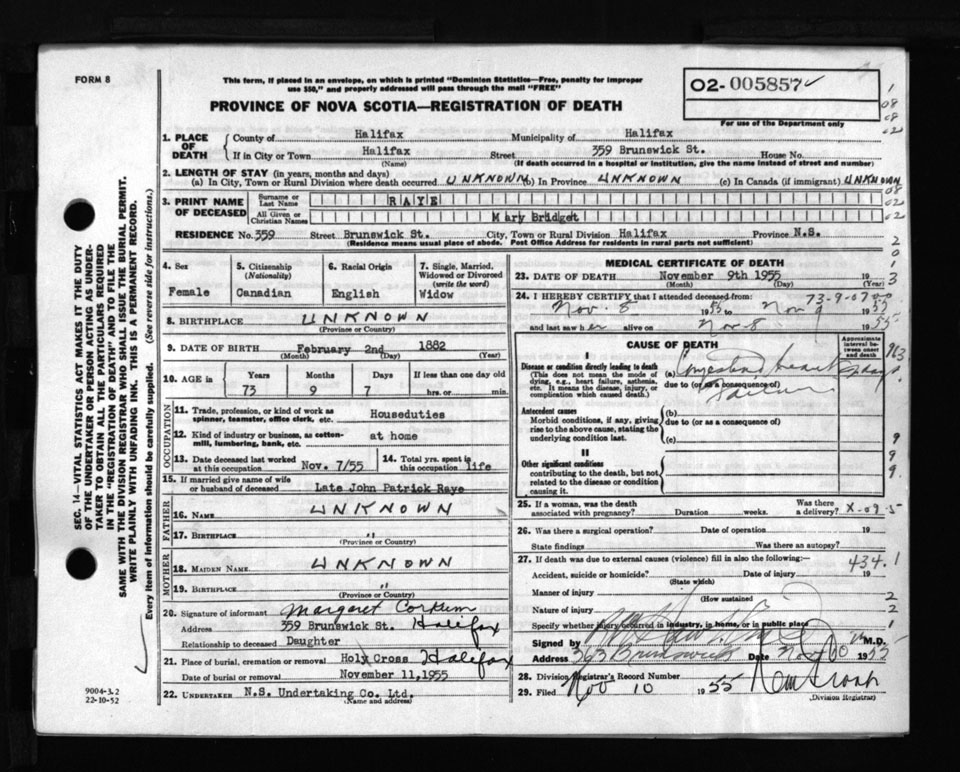 FORM 8
This form, if placed in an envelope, on which is printed "Dominion Statistics—Free, penalty for improper
use $50," and properly addressed will pass through the mail "FREE"
PROVINCE OF NOVA SCOTIA—REGISTRATION OF DEATH
O2- 005857
For use of the Department only
1
08
08
02
1. PLACE OF DEATH County of Halifax Municipality of Halifax
If in City or Town Halifax Street 359 Brunswick St. House No.
(Name) (If death occurred in a hospital or institution, give the name instead of street and number)
2. LENGTH OF STAY (in years, months and days)
(a) In City, Town or Rural Division where death occurred UNKNOWN (b) In Province UNKNOWN (c) In Canada (if immigrant) UNKNOWN
3. PRINT NAME OF DECEASED Surname or Last Name RAYE
All Given or Christian Names Mary Bridget
08
02
02
RESIDENCE No. 359 Street Brunswick St. City, Town or Rural Division Halifax Province N.S.
(Residence means usual place of abode. Post Office Address for residents in rural parts not sufficient)
4. Sex Female
5. Citizenship (Nationality) Canadian
6. Racial Origin English
7. Single, Married, Widowed or Divorced (write the word) Widow
8. BIRTHPLACE UNKNOWN
(Province or Country)
9. DATE OF BIRTH February 2nd 1882
(Month) (Day) (Year)
10. AGE in Years Months Days If less than one day old
73 9 7 hrs. or min.
OCCUPATION
11. Trade, profession, or kind of work as spinner, teamster, office clerk, etc. Houseduties
12. Kind of industry or business, as cotton-mill, lumbering, bank, etc. at home
13. Date deceased last worked at this occupation Nov. 7/55
14. Total yrs. spent in this occupation life
15. If married give name of wife or husband of deceased Late John Patrick Raye
FATHER
16. NAME UNKNOWN
17. BIRTHPLACE "
(Province or Country)
MOTHER
18. MAIDEN NAME UNKNOWN
19. BIRTHPLACE "
(Province or Country)
20. Signature of informant Margaret Corkum
Address 359 Brunswick St. Halifax
Relationship to deceased Daughter
21. Place of burial, cremation or removal Holy Cross Halifax
Date of burial or removal November 11,1955
22. UNDERTAKER N.S. Undertaking Co. Ltd.
(Name and address)
MEDICAL CERTIFICATE OF DEATH
23. DATE OF DEATH November 9th 1955 19
(Month) (Day) (Year)
2
0
1
3
24. I HEREBY CERTIFY that I attended deceased from: 73-9-07
Nov 8 1955 to Nov 9 1955
and last saw her alive on Nov 8 1955
CAUSE OF DEATH
Approximate interval between onset and death
I
Disease or condition directly leading to death
(This does not mean the mode of dying, e.g., heart failure, asthenia, etc. It means the disease, injury, or complication which caused death.)
(a) Congested heart
due to (or as a consequence of)
failure
2 days
Antecedent causes
Morbid conditions, if any, giving rise to the above cause, stating the underlying condition last.
(b)
due to (or as a consequence of)
(c)
II
Other significant conditions
contributing to the death, but not related to the disease or condition causing it.
963
9
9
9
25. If a woman, was the death associated with pregnancy? Duration weeks. Was there a delivery? X-09-5
26. Was there a surgical operation? Date of operation 19
State findings Was there an autopsy?
27. If death was due to external causes (violence) fill in also the following:— 434.1
Accident, suicide or homicide? Date of injury 19
(State which)
Manner of injury
(How sustained)
Nature of injury
Specify whether injury occurred in industry, in home, or in public place
2
2
1
Signed by M.D.
Address 393 Brunswick Date Nov 10 1955
28. Division Registrar's Record Number
29. Filed Nov 10 1955
(Division Registrar)
SEC. 14—VITAL STATISTICS ACT MAKES IT THE DUTY
OF THE UNDERTAKER OR PERSON ACTING AS UNDER-
TAKER TO OBTAIN ALL THE PARTICULARS REQUIRED
IN THE "REGISTRATION OF DEATH" AND TO FILE THE
SAME WITH THE DIVISION REGISTRAR WHO SHALL ISSUE THE BURIAL PERMIT.
WRITE PLAINLY WITH UNFADING INK. THIS IS A PERMANENT RECORD.
Every item of information should be carefully supplied. (See reverse side for instructions.)
9004-3.2
22-10-52